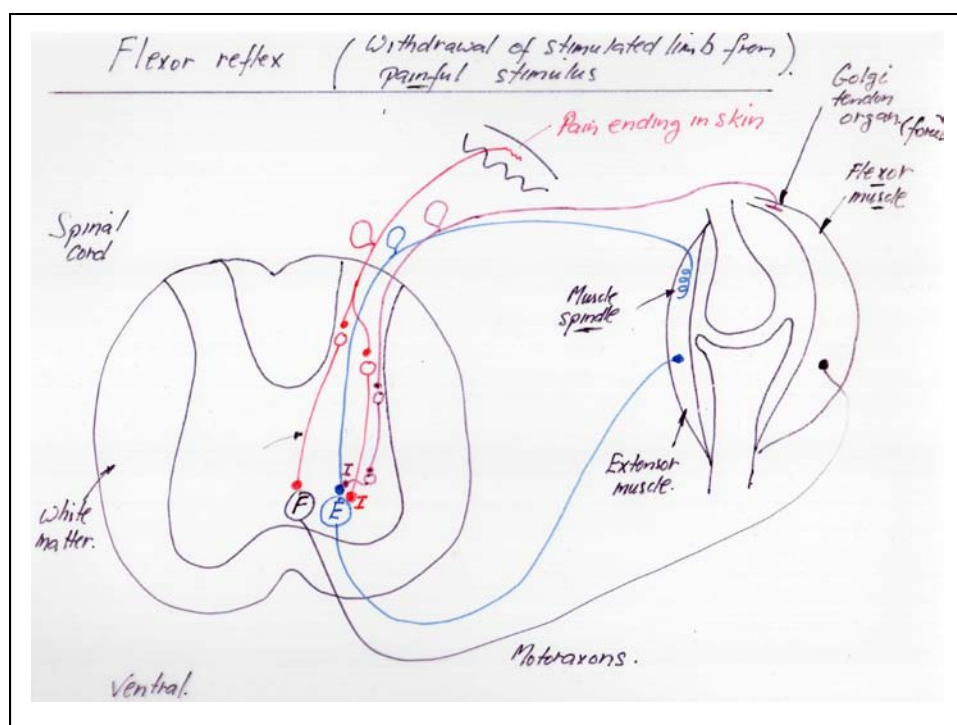 Flexor reflex (Withdrawal of stimulated limb from
painful stimulus).
Golgi
tendon
organ.
Pain ending in skin
Flexor
muscle
Spinal
cord
Muscle
spindle
Extensor
muscle.
I
I
F
E
White
matter.
Motoraxons.
Ventral.